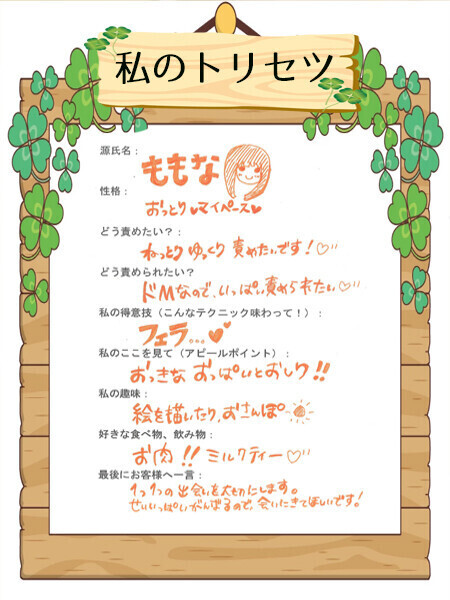 私のトリセツ
源氏名：
ももな
性格：
おっとり♥マイペース♥
どう責めたい？：
ねっとりゆっくり責めたいです！♡
どう責められたい？
ドMなので、いっぱい責められたい♡
私の得意技（こんなテクニック味わって！）：
フェラ...♥
私のここを見て（アピールポイント）：
おっきなおっぱいとおしり!!
私の趣味：
絵を描いたり、おさんぽ
好きな食べ物、飲み物：
お肉!!ミルクティー♡
最後にお客様へ一言：
1つ1つの出会いを大切にします。
せいいっぱいがんばるので、会いにきてほしいです!